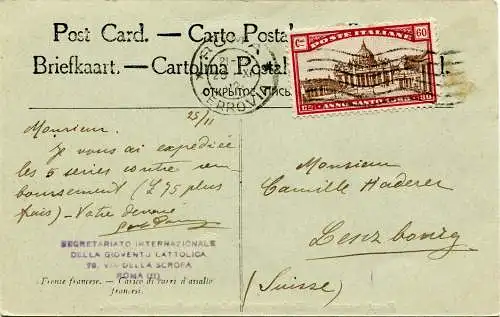 Post Card. — Carte Postale
Briefkaart. — Cartolina Postale
ОТКРЫТОЕ ПИСЬМО
ROMA
FERROVIA
POSTE ITALIANE
60
ANNO SANTO
25/11
Monsieur.
Je vous ai expédiée
les 6 series contre rem
boursement (£ 95 plus
frais) — Votre devoué
SEGRETARIATO INTERNAZIONALE
DELLA GIOVENTÙ CATTOLICA
70, VIA DELLA SCROFA
ROMA
Fronte francese. — Carico di carri d'assalto
francesi.
Monsieur
Camille Haderer
Lenzbourg
(Suisse)